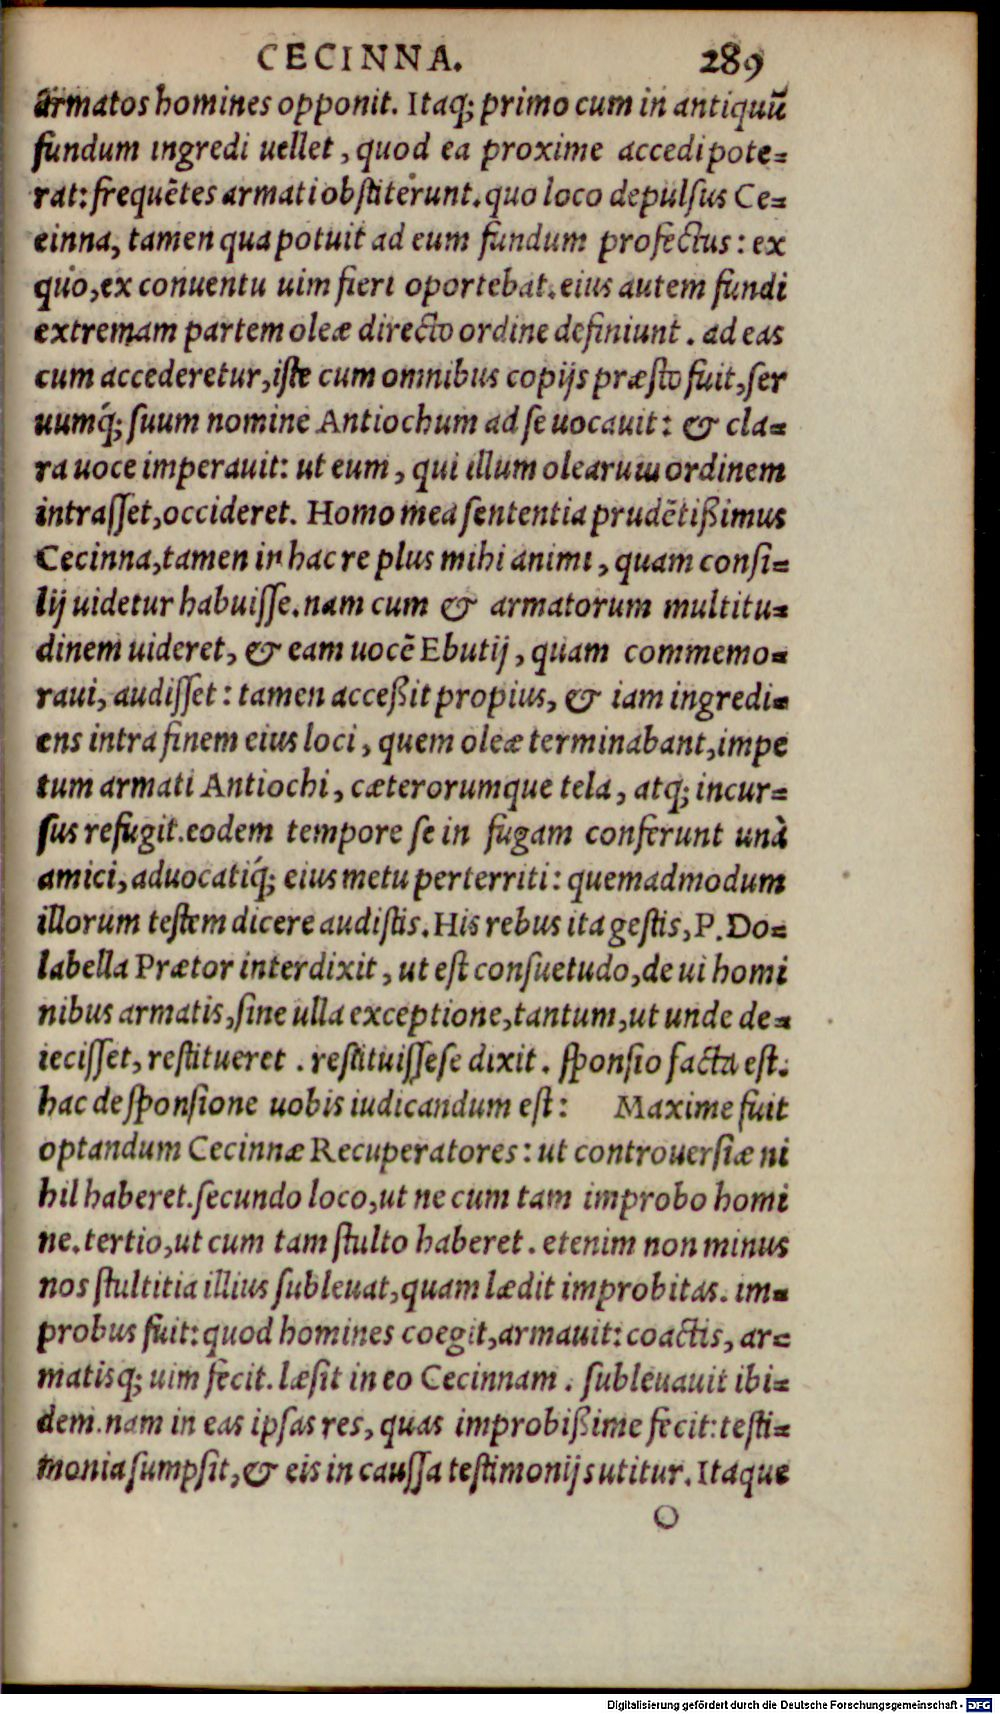 CECINNA. 289
armatos homines opponit. Itaq; primo cum in antiquũ
fundum ingredi uellet, quod ea proxime accedi pote=
rat: frequẽtes armati obstiterunt. quo loco depulsus Ce=
cinna, tamen qua potuit ad eum fundum profectus: ex
quo, ex conuentu uim fieri oportebat. eius autem fundi
extremam partem oleæ directo ordine definiunt. ad eas
cum accederetur, iste cum omnibus copijs præsto fuit, ser
uumq́; suum nomine Antiochum ad se uocauit: & cla=
ra uoce imperauit: ut eum, qui illum olearum ordinem
intrasset, occideret. Homo mea sententia prudẽtißimus
Cecinna, tamen in hac re plus mihi animi, quam consi=
lij uidetur habuisse. nam cum & armatorum multitu=
dinem uideret, & eam uocẽ Ebutij, quam commemo=
raui, audisset: tamen acceßit propius, & iam ingredi=
ens intra finem eius loci, quem oleæ terminabant, impe
tum armati Antiochi, cæterorumque tela, atq; incur=
sus refugit. eodem tempore se in fugam conferunt unà
amici, aduocatiq́; eius metu perterriti: quemadmodum
illorum testem dicere audistis. His rebus ita gestis, P. Do=
labella Prætor interdixit, ut est consuetudo, de ui homi
nibus armatis, sine ulla exceptione, tantum, ut unde de=
iecisset, restitueret. restituisse se dixit. sponsio facta est.
hac de sponsione uobis iudicandum est: Maxime fuit
optandum Cecinnæ Recuperatores: ut controuersiæ ni
hil haberet. secundo loco, ut ne cum tam improbo homi
ne. tertio, ut cum tam stulto haberet. etenim non minus
nos stultitia illius subleuat, quam lædit improbitas. im=
probus fuit: quod homines coegit, armauit: coactis, ar=
matisq; uim fecit. læsit in eo Cecinnam. subleuauit ibi=
dem. nam in eas ipsas res, quas improbißime fecit: testi=
monia sumpsit, & eis in caussa testimonijs utitur. Itaque
O
Digitalisierung gefördert durch die Deutsche Forschungsgemeinschaft - DFG